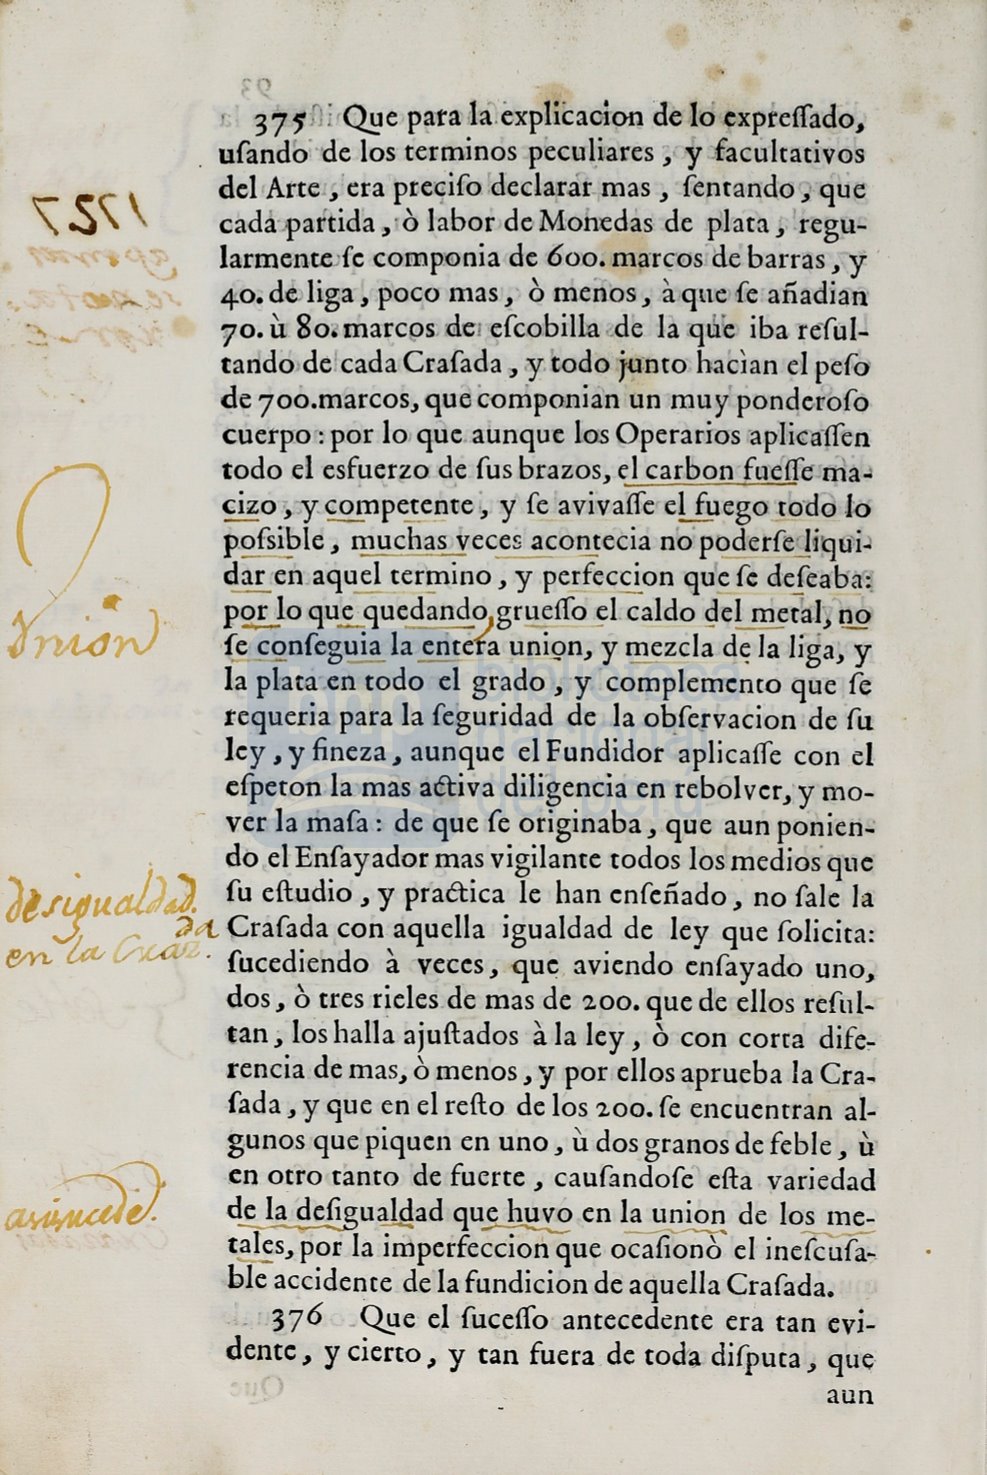 375 Que para la explicacion de lo expreſſado,
uſando de los terminos peculiares, y facultativos
del Arte, era preciſo declarar mas, ſentando, que
cada partida, ò labor de Monedas de plata, regu-
larmente ſe componia de 600. marcos de barras, y
40. de liga, poco mas, ò menos, à que ſe añadian
70. ù 80. marcos de eſcobilla de la que iba reſul-
tando de cada Craſada, y todo junto hacìan el peſo
de 700. marcos, que componian un muy ponderoſo
cuerpo: por lo que aunque los Operarios aplicaſſen
todo el esfuerzo de ſus brazos, el carbon fueſſe ma-
cizo, y competente, y ſe avivaſſe el fuego todo lo
poſsible, muchas veces acontecia no poderſe liqui-
dar en aquel termino, y perfeccion que ſe deſeaba:
por lo que quedando grueſſo el caldo del metal, no
ſe conſeguia la entera union, y mezcla de la liga, y
la plata en todo el grado, y complemento que ſe
requeria para la ſeguridad de la obſervacion de ſu
ley, y fineza, aunque el Fundidor aplicaſſe con el
eſpeton la mas activa diligencia en rebolver, y mo-
ver la maſa: de que ſe originaba, que aun ponien-
do el Enſayador mas vigilante todos los medios que
ſu eſtudio, y practica le han enſeñado, no ſale la
Craſada con aquella igualdad de ley que ſolicita:
ſucediendo à veces, que aviendo enſayado uno,
dos, ò tres rieles de mas de 200. que de ellos reſul-
tan, los halla ajuſtados à la ley, ò con corta dife-
rencia de mas, ò menos, y por ellos aprueba la Cra-
ſada, y que en el reſto de los 200. ſe encuentran al-
gunos que piquen en uno, ù dos granos de feble, ù
en otro tanto de fuerte, cauſandoſe eſta variedad
de la deſigualdad que huvo en la union de los me-
tales, por la imperfeccion que ocaſionò el ineſcuſa-
ble accidente de la fundicion de aquella Craſada.
376 Que el ſuceſſo antecedente era tan evi-
dente, y cierto, y tan fuera de toda diſputa, que
aun
Vnion
desigualdad.
en la Craz.da
asi sucede.
biblioteca
nacional
del perú